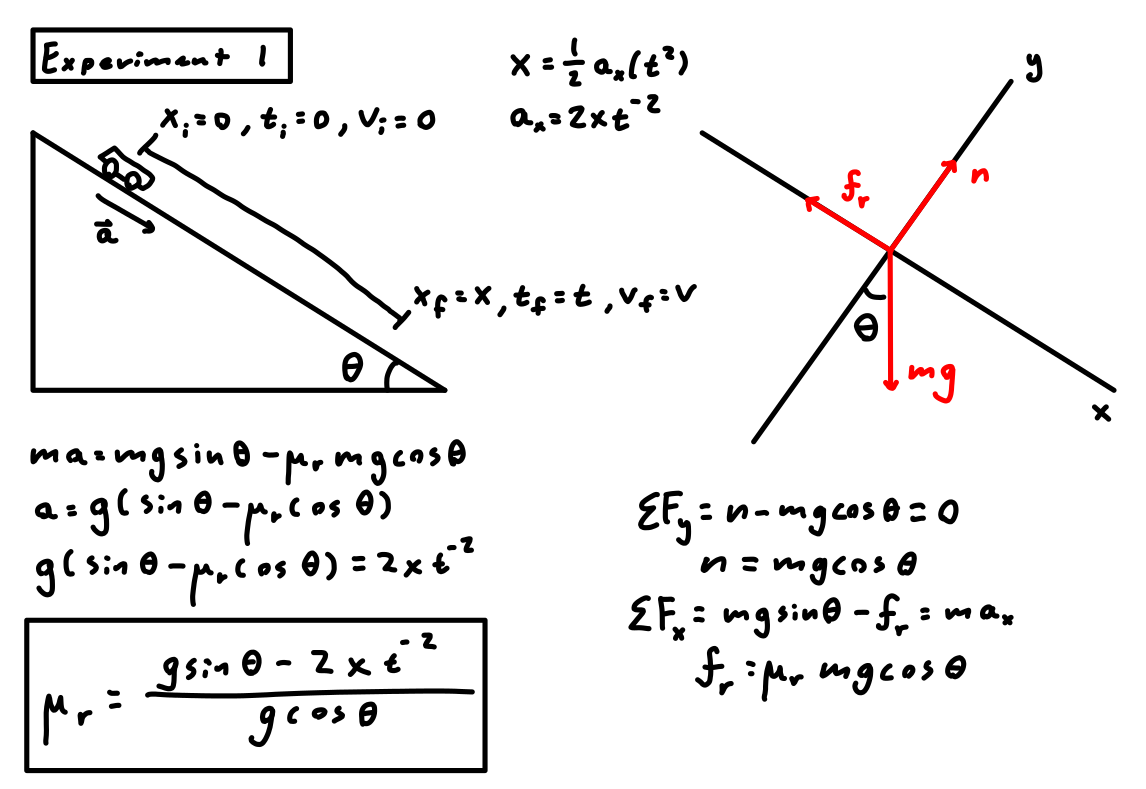 Experiment 1
x = 1/2 aₓ(t²)
aₓ = 2xt⁻²
xᵢ = 0, tᵢ = 0, vᵢ = 0
a⃗
x_f = x, t_f = t, v_f = v
θ
y
n
f_r
θ
mg
x
ma = mg sin θ - μ_r mg cos θ
a = g(sin θ - μ_r cos θ)
g(sin θ - μ_r cos θ) = 2xt⁻²
μ_r = (g sin θ - 2xt⁻²) / (g cos θ)
ΣF_y = n - mg cos θ = 0
n = mg cos θ
ΣFₓ = mg sin θ - f_r = maₓ
f_r = μ_r mg cos θ